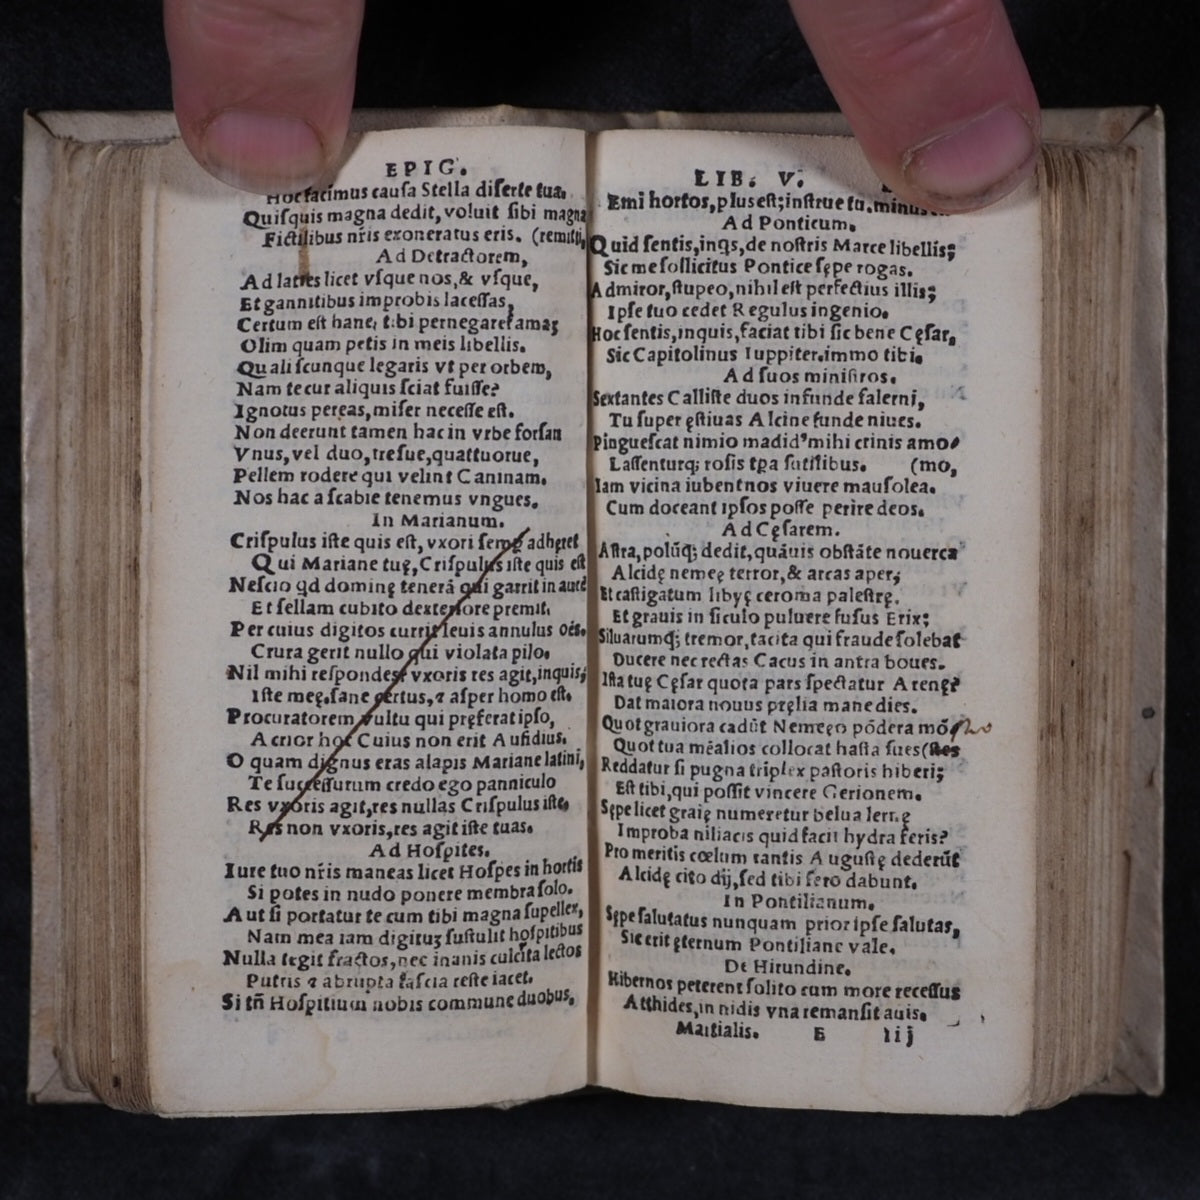 EPIG.
Hoc facimus causa Stella diserte tua.
Quisquis magna dedit, voluit sibi magna
Fictilibus nr̃is exoneratus eris. (remitti,
Ad Detractorem,
Ad latres licet vsque nos, & vsque,
Et gannitibus improbis lacessas,
Certum est hanc tibi pernegare famaꝫ
Olim quam petis in meis libellis.
Qualiscunque legaris vt per orbem,
Nam te cur aliquis sciat fuisse?
Ignotus pereas, miser necesse est.
Non deerunt tamen hac in vrbe forsan
Vnus, vel duo, tresue, quattuorue,
Pellem rodere qui velint Caninam.
Nos hac a scabie tenemus vngues.
In Marianum.
Crispulus iste quis est, vxori semp̱ adhęret
Qui Mariane tuę, Crispulus iste quis est
Nescio qd dominę tenerā qui garrit in aurē
Et sellam cubito dexteriore premit.
Per cuius digitos currit leuis annulus oẽs.
Crura gerit nullo qui violata pilo.
Nil mihi respondes? vxoris res agit, inquis,
Iste meę. sane certus, ⁊ asper homo est.
Procuratorem vultu qui pręferat ipso,
Acrior hoc Cuius non erit Aufidius.
O quam dignus eras alapis Mariane latini,
Te successurum credo ego panniculo
Res vxoris agit, res nullas Crispulus iste.
Res non vxoris, res agit iste tuas.
Ad Hospites.
Iure tuo nr̃is maneas licet Hospes in hortis
Si potes in nudo ponere membra solo.
Aut si portatur tecum tibi magna supellex,
Nam mea iam digituꝫ sustulit hospitibus
Nulla tegit fractos, nec inanis culcita lectos
Putris ⁊ abrupta fascia reste iacet.
Si tñ Hospitium nobis commune duobus,
LIB. V.
Emi hortos, plus est; instrue tu. minus
Ad Ponticum.
Quid sentis, inqs, de nostris Marce libellis;
Sic me sollicitus Pontice sępe rogas.
Admiror, stupeo, nihil est perfectius illis;
Ipse tuo cedet Regulus ingenio.
Hoc sentis, inquis, faciat tibi sic bene Cęsar,
Sic Capitolinus Iuppiter. immo tibi.
Ad suos ministros.
Sextantes Calliste duos infunde falerni,
Tu super ęstiuas Alcine funde niues.
Pinguescat nimio madidꝰ mihi crinis amo/
Lassenturq; rosis tp̱a sutilibus. (mo,
Iam vicina iubent nos viuere mausolea.
Cum doceant ipsos posse perire deos.
Ad Cęsarem.
Astra, polũq; dedit, quāuis obstāte nouerca
Alcidę nemeę terror, & arcas aper;
Et castigatum libyę ceroma palestrę.
Et grauis in siculo puluere fusus Erix;
Siluarumq; tremor, tacita qui fraude solebat
Ducere nec rectas Cacus in antra boues.
Ista tuę Cęsar quota pars spectatur Arenę?
Dat maiora nouus pręlia mane dies.
Quot grauiora cadũt Nemeęo põdera mõ
Quot tua mẽalios collocat hasta sues (stes
Reddatur si pugna triplex pastoris hiberi;
Est tibi, qui possit vincere Gerionem.
Sępe licet graię numeretur belua lernę
Improba niliacis quid facit hydra feris?
Pro meritis cœlum tantis Augustę dederũt
Alcidę cito dij, sed tibi sero dabunt.
In Pontilianum.
Sępe salutatus nunquam prior ipse salutas,
Sic erit ęternum Pontiliane vale.
De Hirundine.
Hibernos peterent solito cum more recessus
Atthides, in nidis vna remansit auis.
Martialis. E iij